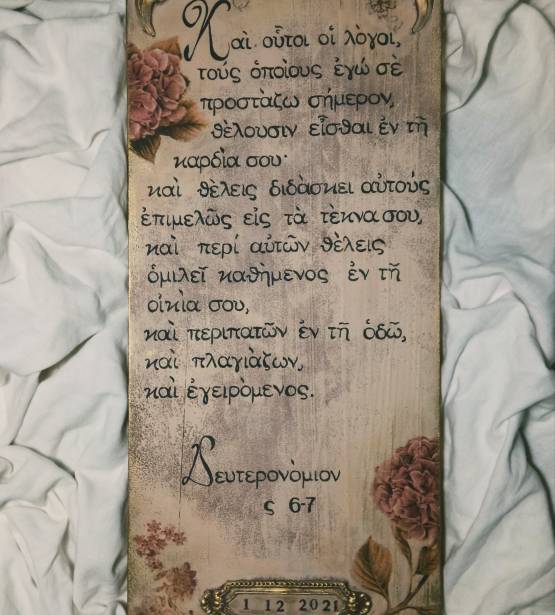 Καὶ οὗτοι οἱ λὸγοι,
τούς ὁποίους ἐγώ σὲ
προστὰζω σήμερον,
θὲλουσιν εἶσθαι ἐν τῆ
καρδὶα σου·
καὶ θὲλεις διδὰσκει αὐτούς
ἐπιμελῶς εἰς τὰ τὲκνα σου,
καὶ περί αὐτῶν θὲλεις
ὁμιλεῖ καθὴμενος ἐν τῆ
οἰκὶα σου,
καὶ περιπατῶν ἐν τῆ ὁδῶ,
καὶ πλαγιὰζων,
καὶ ἐγειρὸμενος.
Δευτερονὸμιον
ς 6-7
1 12 2021